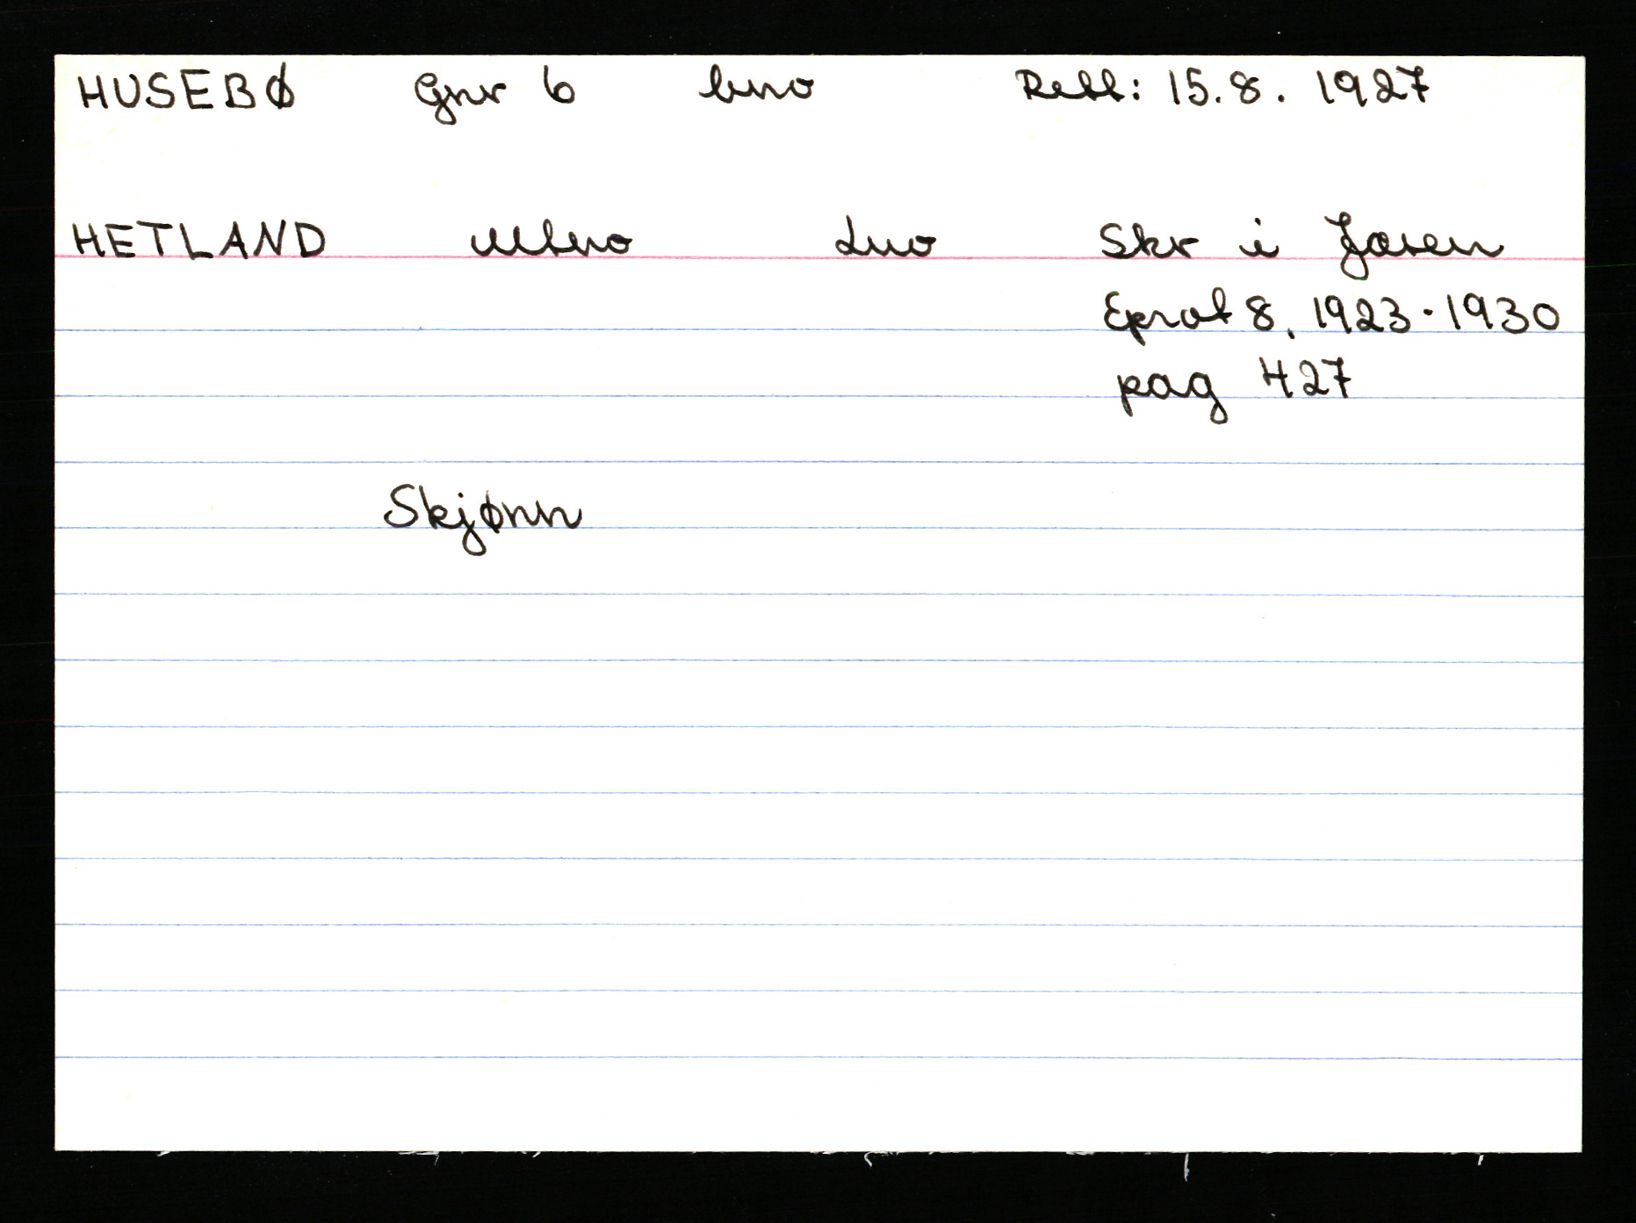 HUSEBØ Gnr 6 bno Rett: 15.8. 1927
HETLAND Mtno Lno Skr i Jæren
Eprot 8, 1923-1930
pag 427
Skjønn